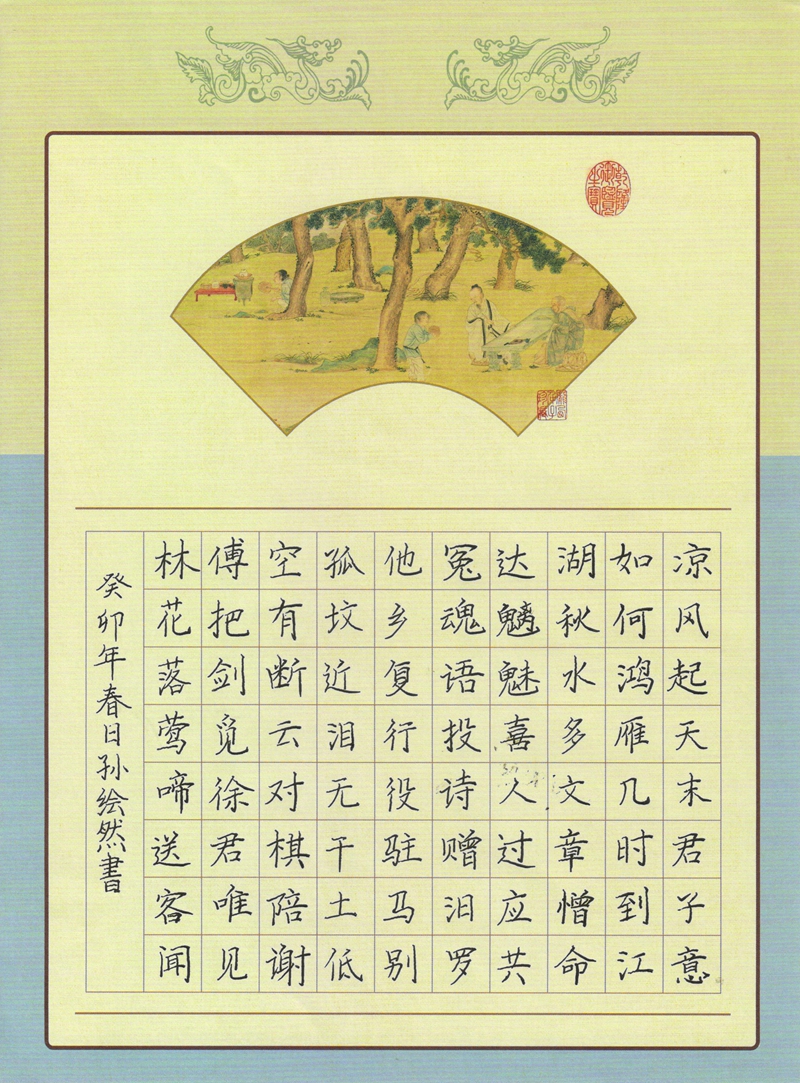 乾隆御覽之寶
凉风起天末君子意
如何鸿雁几时到江
湖秋水多文章憎命
达魑魅喜人过应共
冤魂语投诗赠汨罗
他乡复行役驻马别
孤坟近泪无干土低
空有断云对棋陪谢
傅把剑觅徐君唯见
林花落莺啼送客闻
癸卯年春日孙绘然書